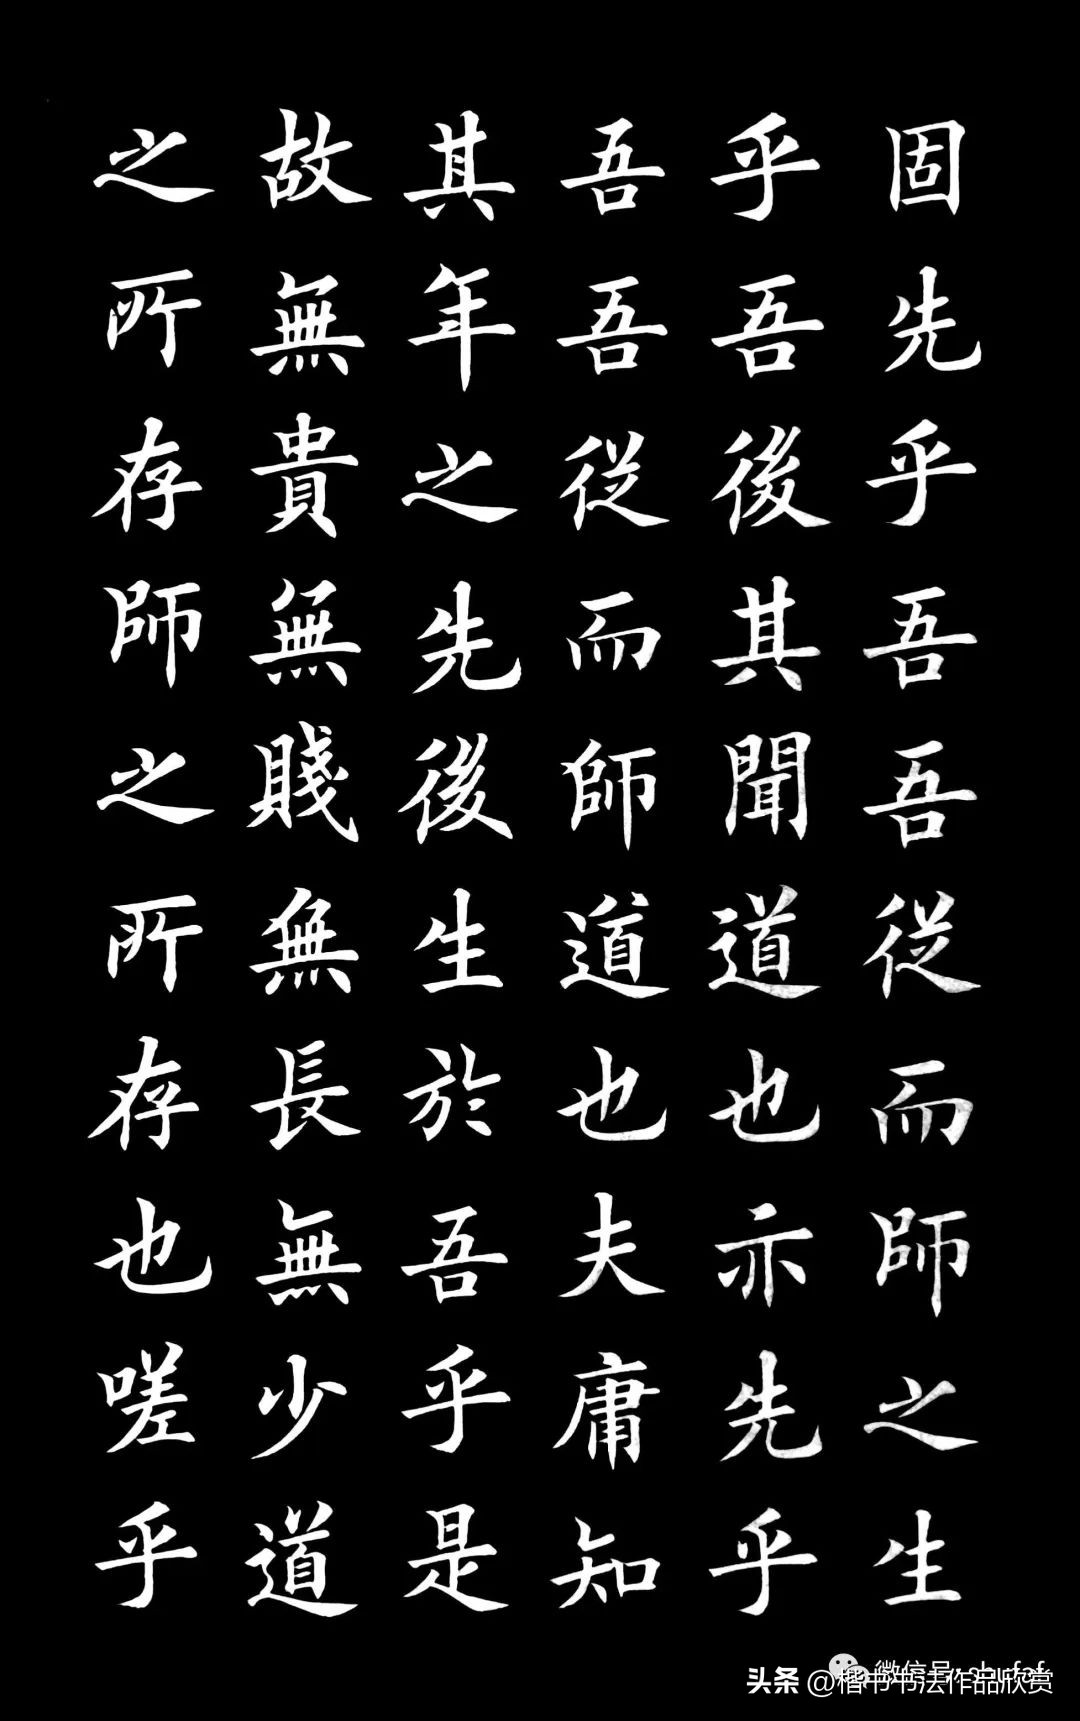 固先乎吾吾從而師之生
乎吾後其聞道也亦先乎
吾吾從而師道也夫庸知
其年之先後生於吾乎是
故無貴無賤無長無少道
之所存師之所存也嗟乎
头条 @楷书书法作品欣赏